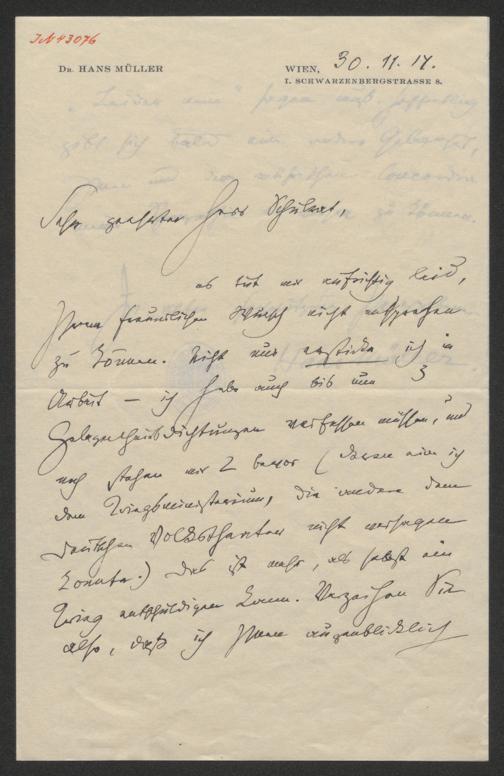 I.N. 43076
DR. HANS MÜLLER
WIEN, 30. 11. 17.
I. SCHWARZENBERGSTRASSE 8.
Sehr geehrter Herr Schulrat,
es tut mir aufrichtig leid,
Ihrem freundlichen Wunsch nicht entsprechen
zu können. Nicht nur ersticke ich in
Arbeit – ich habe auch bis nun 3
Gelegenheitsdichtungen verfassen müssen, und
noch stehen mir 2 bevor (deren eine ich
dem Kriegsministerium, die andere dem
Deutschen Volkstheater nicht versagen
konnte.) Das ist mehr, als selbst ein
Krieg entschuldigen kann. Verzeihen Sie
also, daß ich Ihnen augenblicklich